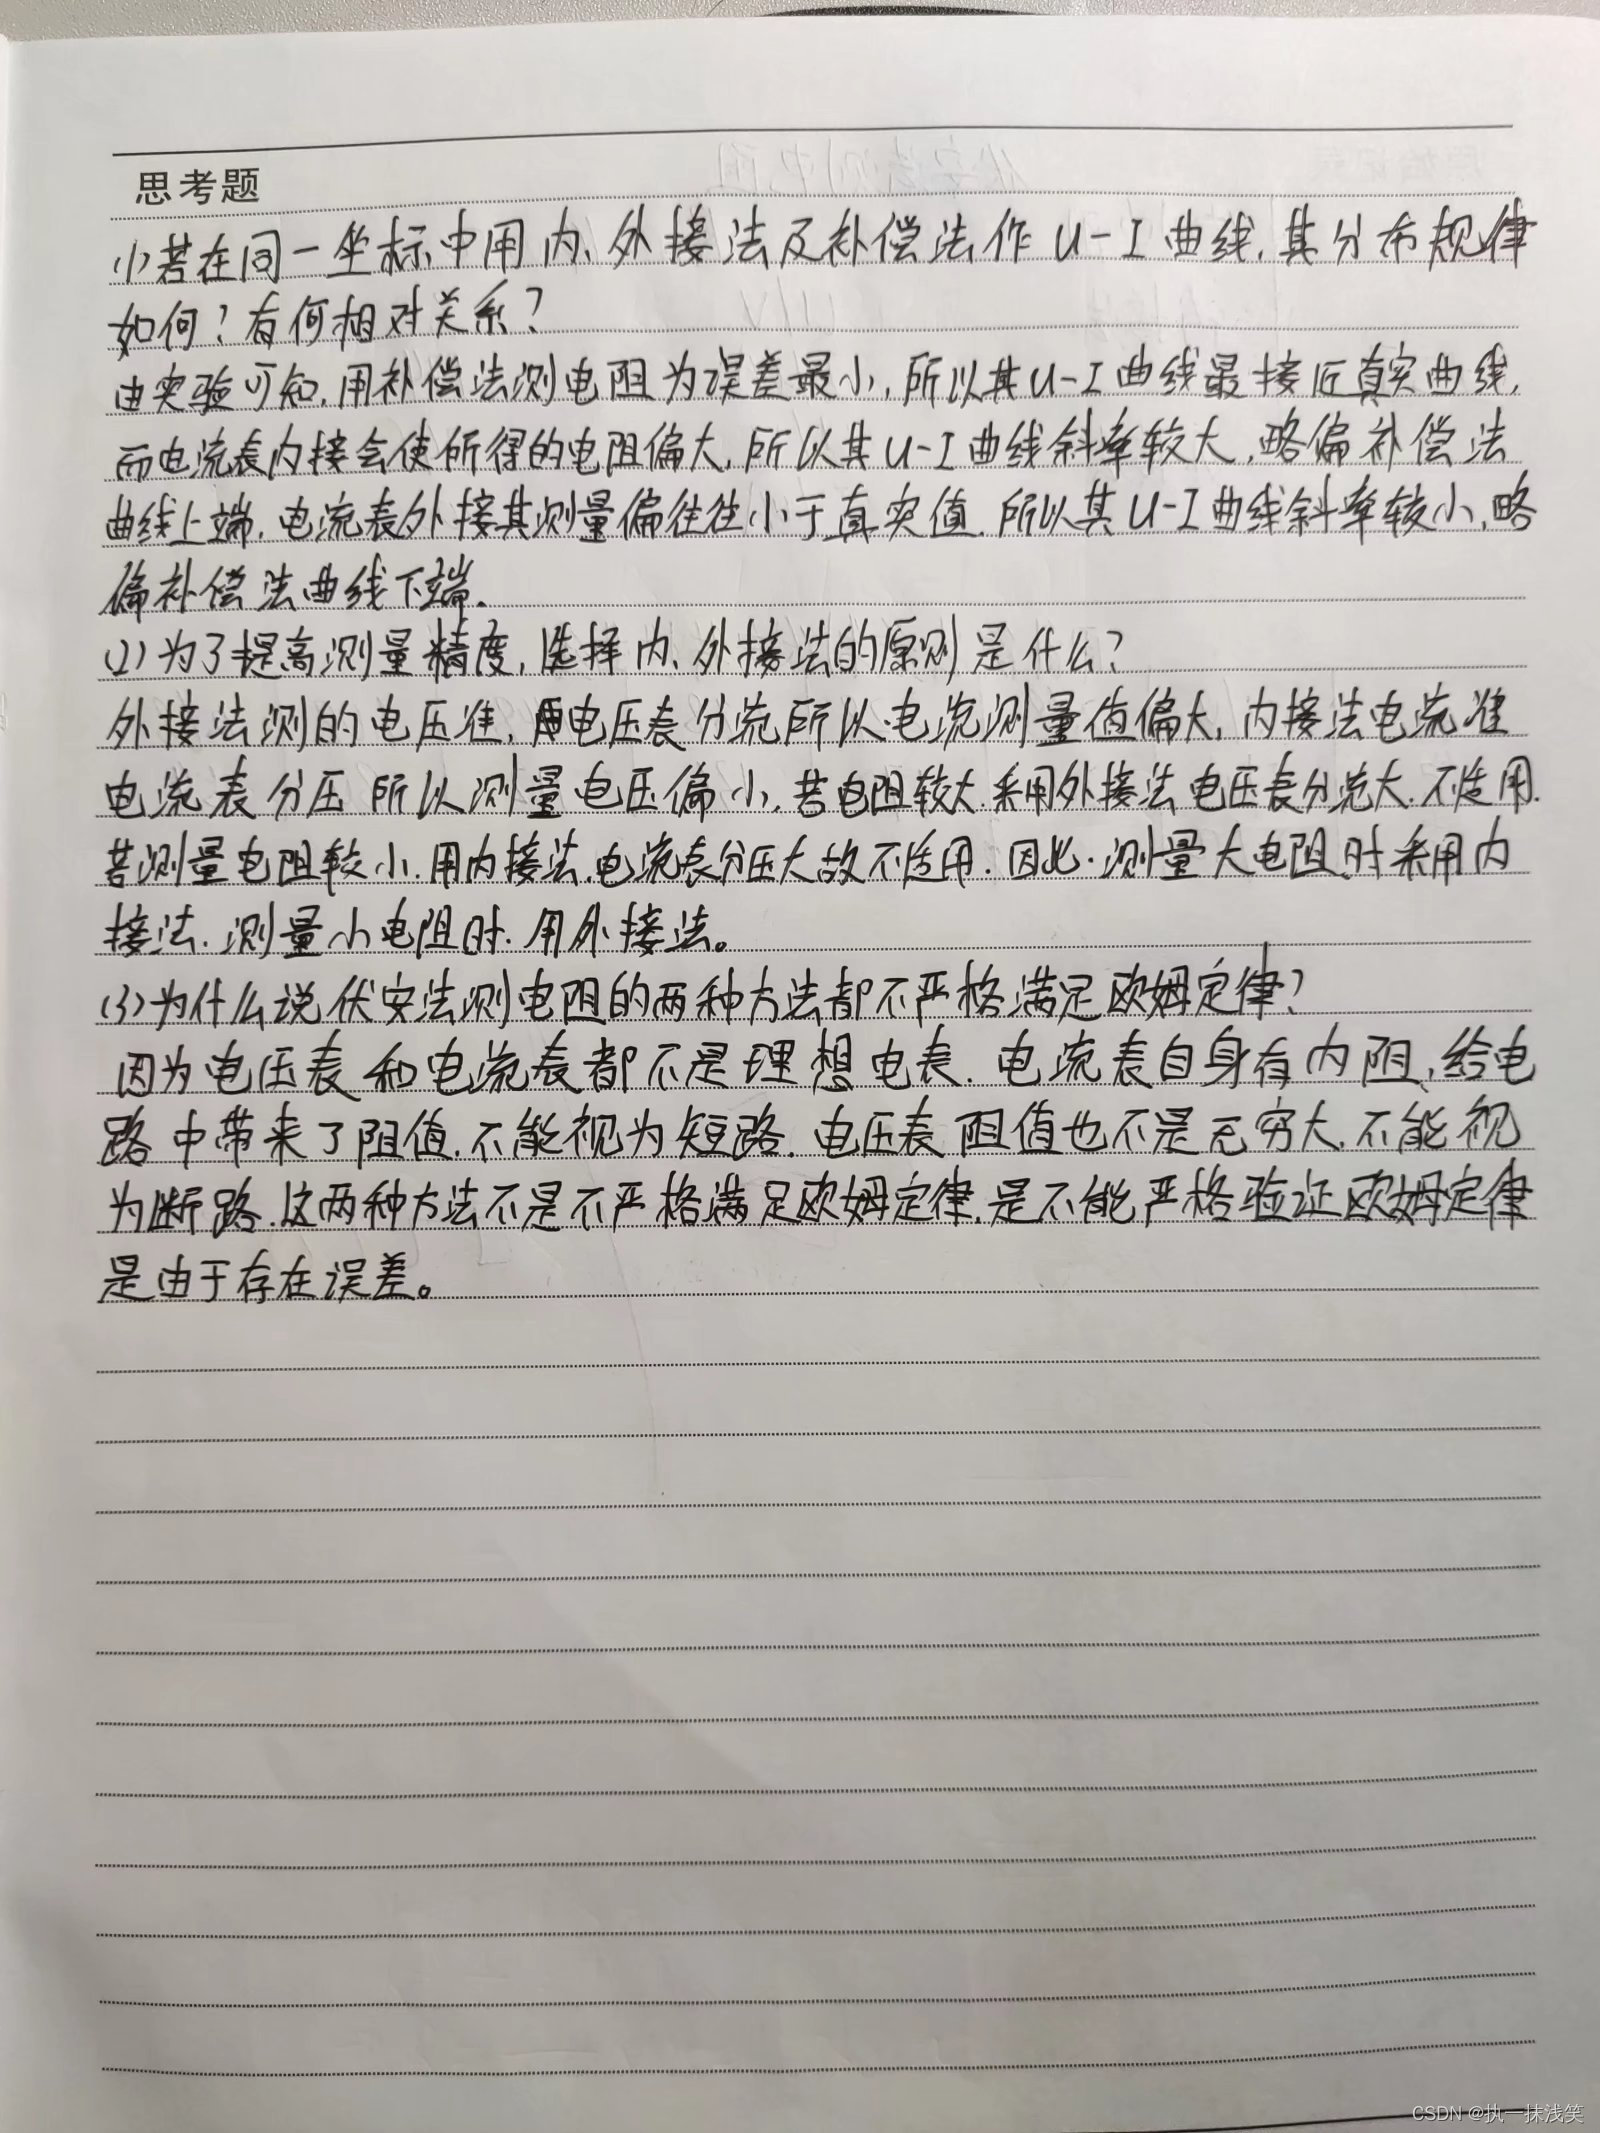 思考题
(1)若在同一坐标中用内、外接法及补偿法作U-I曲线,其分布规律
如何?有何相对关系?
由实验可知,用补偿法测电阻为误差最小,所以其U-I曲线最接近真实曲线,
而电流表内接会使所得的电阻偏大,所以其U-I曲线斜率较大,略偏补偿法
曲线上端,电流表外接其测量偏往往小于真实值,所以其U-I曲线斜率较小,略
偏补偿法曲线下端.
(2)为了提高测量精度,选择内、外接法的原则是什么?
外接法测的电压准,电压表分流所以电流测量值偏大,内接法电流准
电流表分压所以测量电压偏小,若电阻较大.采用外接法电压表分流大.不适用.
若测量电阻较小.用内接法.电流表分压大故不适用.因此.测量大电阻时采用内
接法.测量小电阻时.用外接法。
(3)为什么说伏安法测电阻的两种方法都不严格满足欧姆定律?
因为电压表和电流表都不是理想电表.电流表自身有内阻,给电
路中带来了阻值.不能视为短路.电压表阻值也不是无穷大.不能视
为断路.这两种方法不是不严格满足欧姆定律.是不能严格验证欧姆定律
是由于存在误差。
CSDN @执一抹浅笑